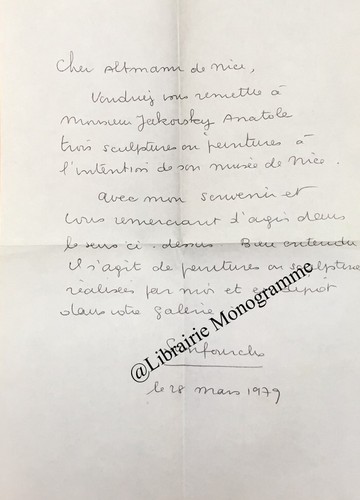 Cher Altmann de Nice,
Voudriez vous remettre à
Monsieur Jakovsky Anatole
trois sculptures ou peintures à
l'intention de son musée de Nice.
Avec mon souvenir et
vous remerciant d'agir dans
le sens ci-dessus. Bien entendu
il s'agit de peintures ou sculptures
réalisées par moi et en dépôt
dans votre galerie
Sanfourche
le 28 mars 1979
@Librairie Monogramme